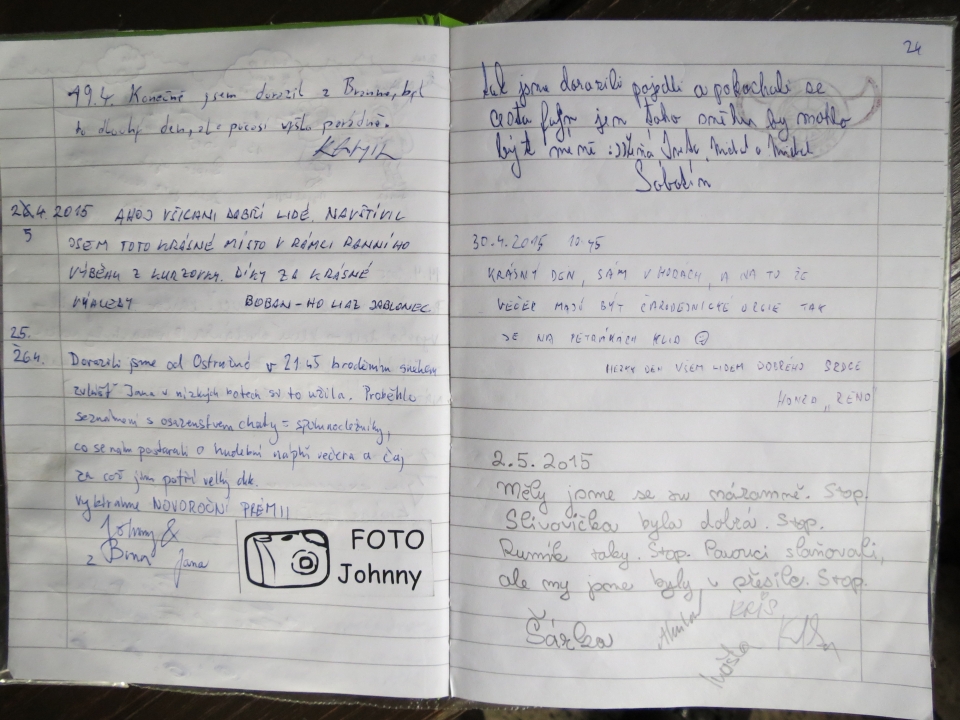 19.4. Konečně jsem dorazil z Brumu, byl
to dlouhý den, ale počasí vyšlo parádně.
KAMIL
25.4. 2015 AHOJ VŠICHNI DOBŘÍ LIDÉ. NAVŠTÍVIL
JSEM TOTO KRÁSNÉ MÍSTO V RÁMCI RANNÍHO
VÝBĚHU Z KURZOVKY. DÍKY ZA KRÁSNÉ
VÝHLEDY BOBAN - HO JABLONEC
25.
26.4. Dorazili jsme od Ostružné v 21 45 broděním sněhem
zvlášť Jana v nízkých botech si to užila. Proběhlo
seznámení s osazenstvem chaty = spolunocležníky,
co se nám postarali o hudební náplň večera a čaj
za což jim patří velký dík.
NOVOROČNÍ PRÉMII
Johnny &
z Brna Jana
FOTO
Johnny
24
Tak jsme dorazili pojedli a pokochali se
cesta fajn jen toho sněhu by mohlo
být méně :)
Sobotín
30.4.2015 10:45
KRÁSNÝ DEN, SÁM V HORÁCH, A NA TO ŽE
VEČER MAJÍ BÝT ČARODEJNICKÉ ORGIE TAK
JE NA PETRÁKÁCH KLID ☺
HEZKÝ DEN VŠEM LIDEM DOBRÉHO SRDCE
HONZA „ZENO"
2.5.2015
Měly jsme se tu náramně. Stop.
Slivovička byla dobrá. Stop.
Rumík taky. Stop. Pavouci slaňovali,
ale my jsme byly v přesile. Stop.
Šárka
KRIS